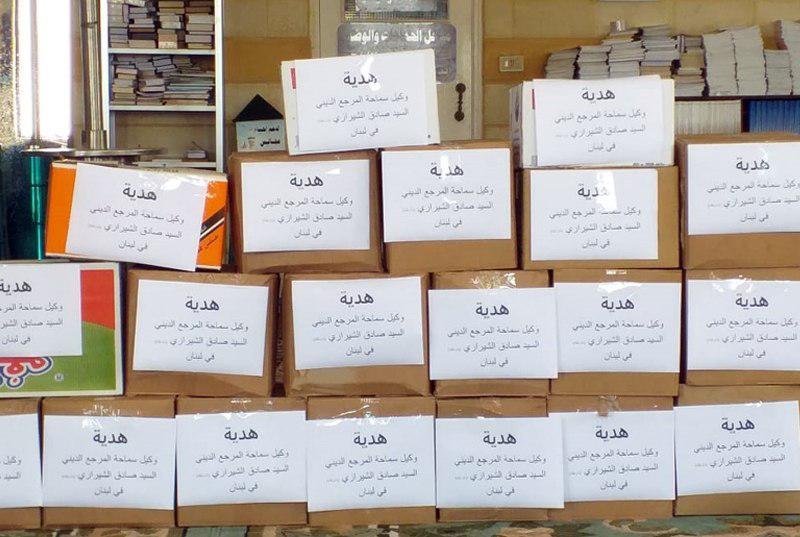 هدية
وكيل سماحة المرجع الديني
السيد صادق الشيرازي
في لبنان
هدية
وكيل سماحة المرجع الديني
السيد صادق الشيرازي
في لبنان
هدية
وكيل سماحة المرجع الديني
السيد صادق الشيرازي
في لبنان
هدية
وكيل سماحة المرجع الديني
السيد صادق الشيرازي
في لبنان
هدية
وكيل سماحة المرجع الديني
السيد صادق الشيرازي
في لبنان
هدية
وكيل سماحة المرجع الديني
السيد صادق الشيرازي
في لبنان
هدية
وكيل سماحة المرجع الديني
السيد صادق الشيرازي
في لبنان
هدية
وكيل سماحة
السيد صادق
في لبنان
هدية
وكيل سماحة المرجع الديني
السيد صادق الشيرازي
في لبنان
هدية
وكيل سماحة المرجع الديني
السيد صادق الشيرازي
في لبنان
هدية
وكيل سماحة المرجع الديني
السيد صادق الشيرازي
في لبنان
هدية
وكيل سماحة المرجع الديني
السيد صادق الشيرازي
في لبنان
هدية
وكيل سماحة المرجع الديني
السيد صادق الشيرازي
في لبنان
وكيل
السيد
هدية
وكيل سماحة المرجع الديني
السيد صادق الشيرازي
في لبنان
هدية
وكيل سماحة المرجع الديني
السيد صادق الشيرازي
في لبنان
هدية
وكيل سماحة المرجع الديني
السيد صادق الشيرازي
في لبنان
هدية
وكيل سماحة المرجع الديني
السيد صادق الشيرازي
في لبنان
هدية
وكيل سماحة المرجع الديني
السيد صادق الشيرازي
في لبنان
هدية
وكيل سماحة المرجع الديني
السيد صادق الشيرازي
في لبنان